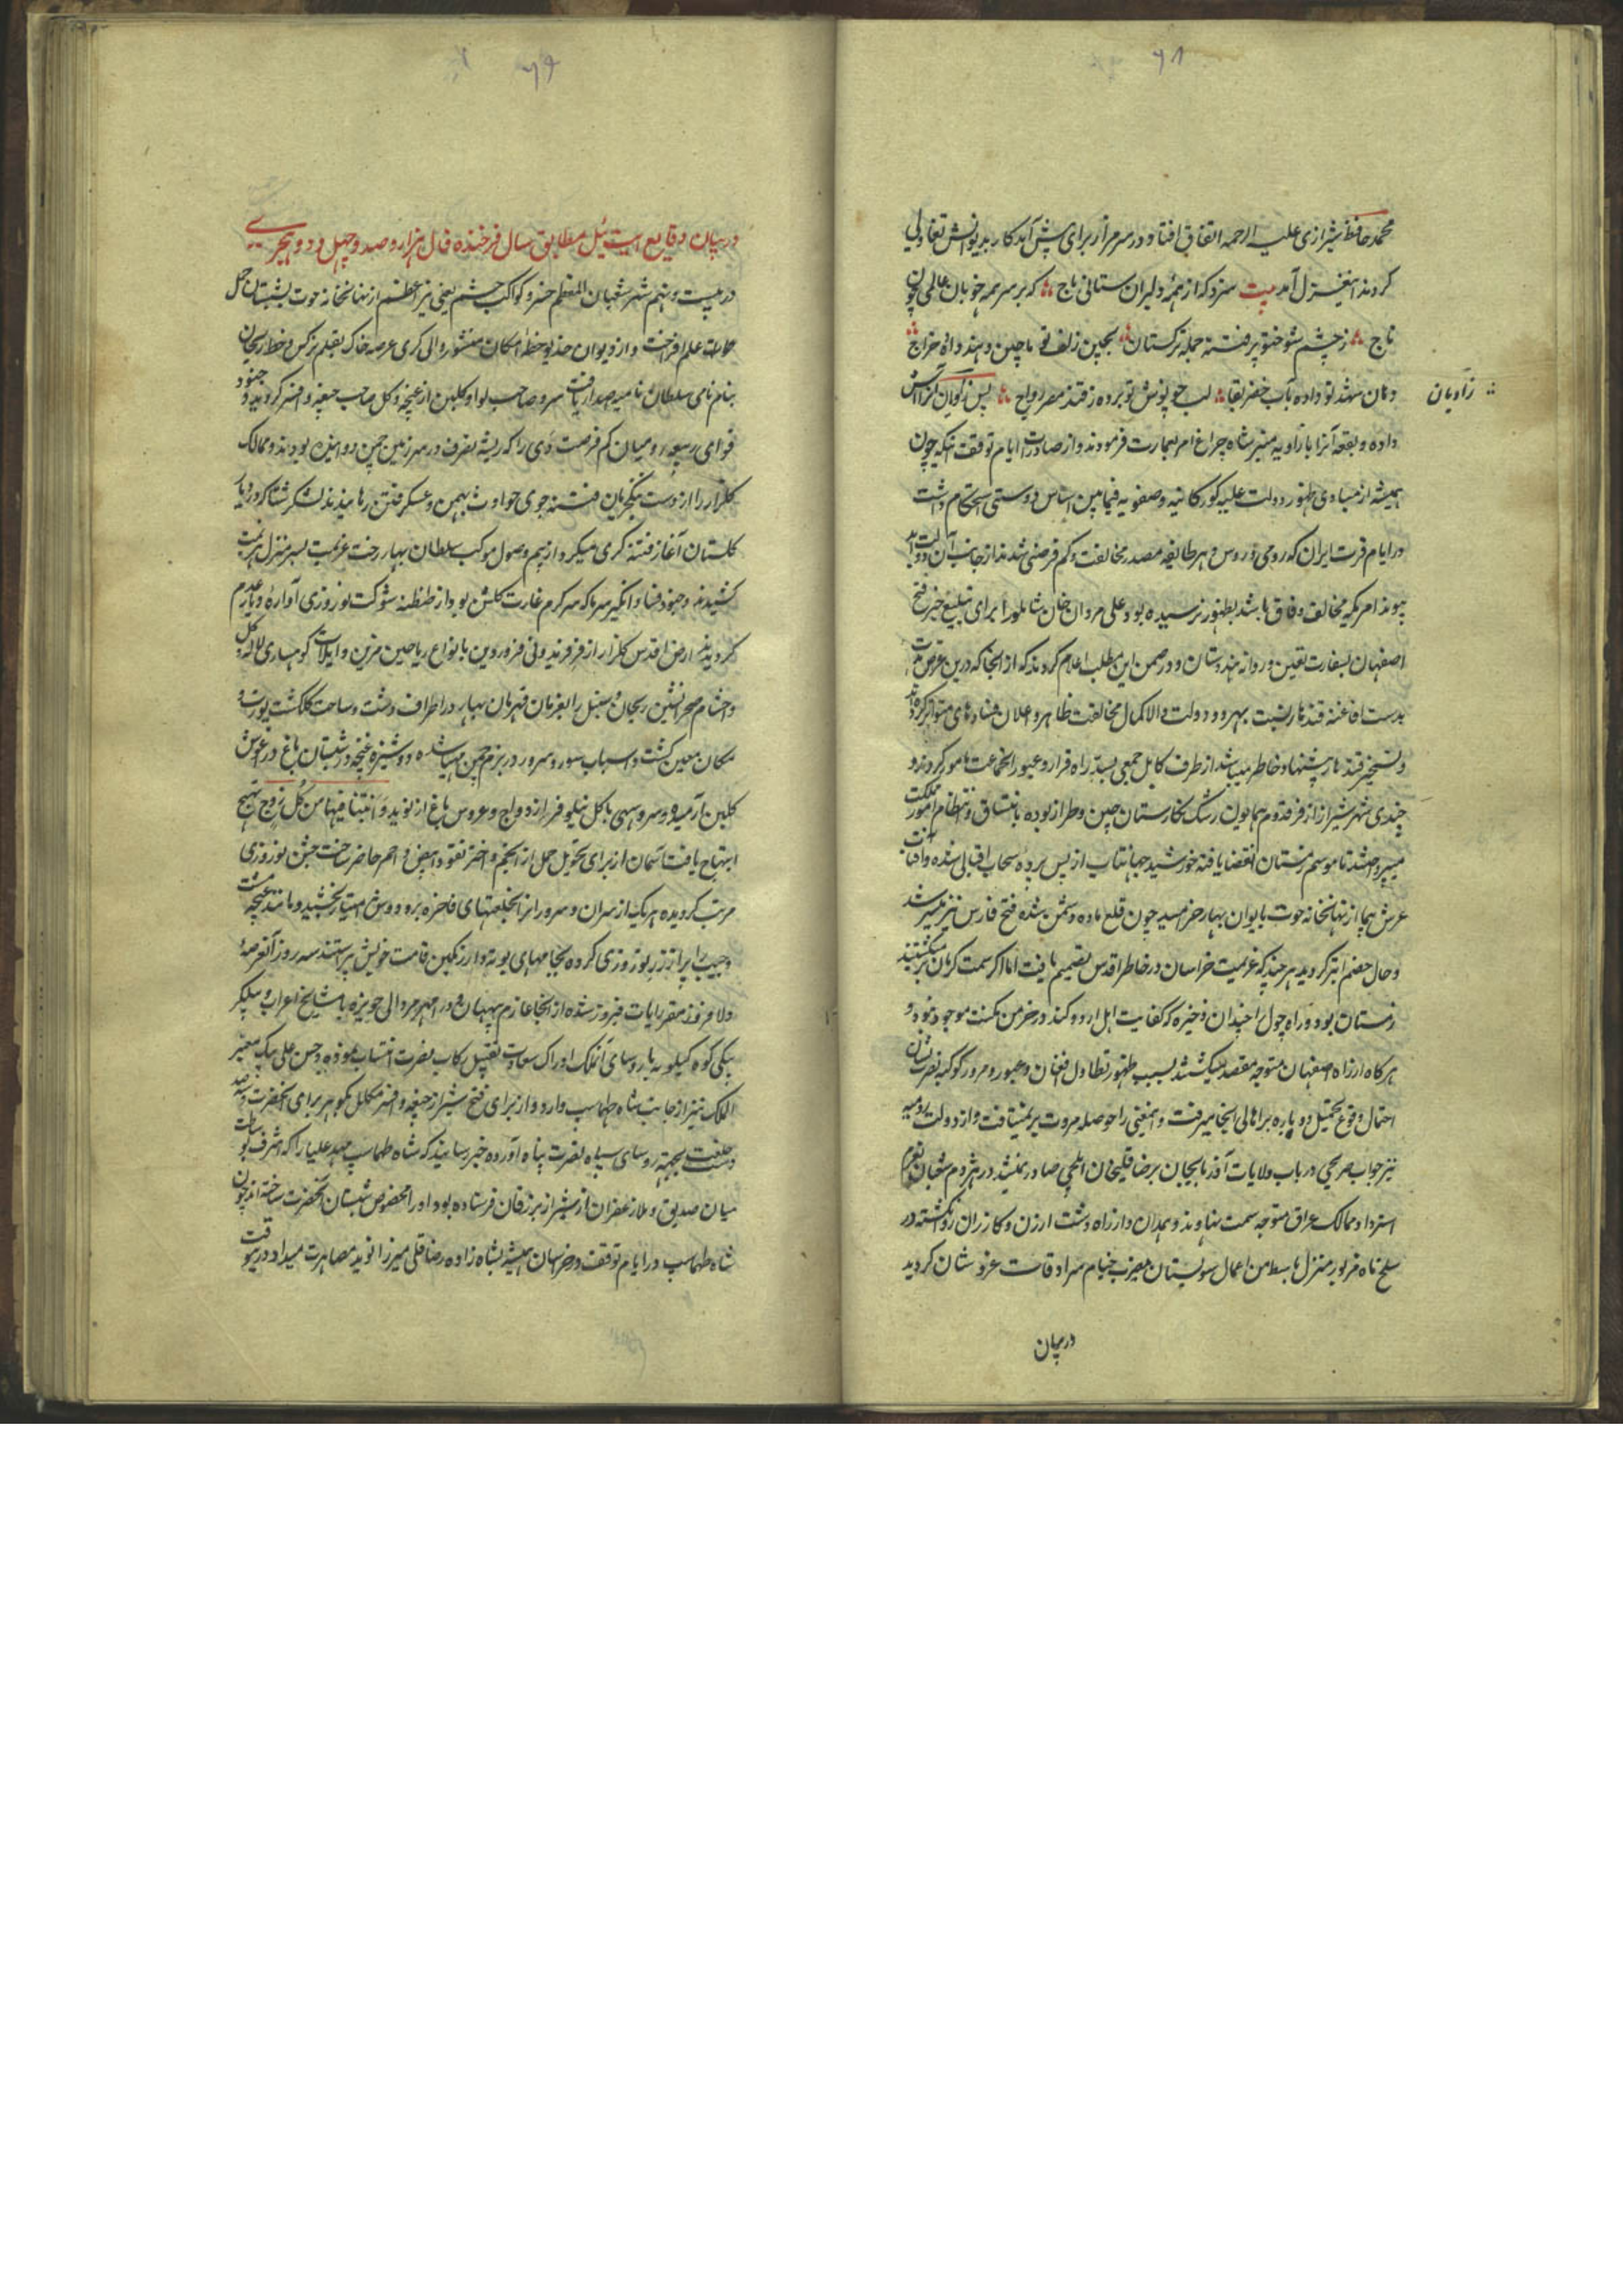 ۶۸
محمد حافظ شیرازی علیه الرحمه اتفاق افتاد و در سر مزار برای پیش آمد کار بدیوانش تفاولی
کردند این غزل آمد بیت سزد که از همهٔ دلبران ستانی باج که بر سر همه خوبان عالمی چون
تاج ز چشم شوخ تو پر فتنه جمله ترکستان بچین زلف تو ماچین و هند داده خراج
دهان شهد تو داده بآب خضر بقا لب چو نوش تو برده ز قند مصر رواج پس
زاویان
داده و بقعه آنرا با زاویه منبر شاه چراغ امر بعمارت فرمودند و از صادرات ایام توقف آنکه چون
همیشه از مبادی ظهور دولت علیه کورکانیه و صفویه فیمابین اساس دوستی استحکام داشت
در ایام فترت ایران که رومی و روس و هر طایفه مصدر مخالفت و کم فرصتی شدند از جانب آن دولت ابد
پیوند امریکه مخالف وفاق باشد بظهور نرسیده بود علی مردان خان شاملو را برای تبلیغ خبر فتح
اصفهان بسفارت تعیین و روانه هندوستان و در ضمن این مطلب اعلام کردند که از آنجا که درین عرض مدت
بدست افاغنه قندهار نسبت بهر دو دولت والا کمال مخالفت ظاهر و اعلان فساد های متواتر کرده اند
و تسخیر قندهار پیشنهاد خاطر میباشد از طرف کابل جمعی بسد راه فرار و عبور آنجماعت مامور گردند و
چندی شهر شیراز از فر قدوم همایون رشک نگارستان چین و طراز بوده بانتساق و انتظام امور مملکت
میپرداختند تا موسم زمستان انقضا یافته خورشید جهانتاب از پس پرده سحاب اقبالی شده و آفتاب
عرش پیما از نهانخانه حوت بایوان بهار خرامید چون قلع ماده دشمن شده فتح فارس نیز میسر شد
و حال خصم ابتر گردید هر چند که عزیمت خراسان در خاطر اقدس تصمیم یافت اما اگر از سمت کرمان بر میگشتند
زمستان بود و راه چول و چندان ذخیره که کفایت اهل اردو کند در خرمن مکنت موجود نبود و
هرگاه از راه اصفهان متوجه مقصد میگشتند بسبب ظهور تطاول افغان و عبور و مرور کوکبه نصرت نشان
احتمال وقوع تحمیل دوباره بر اهالی آنجا میرفت و اینمعنی را حوصله مروت بر نمیتافت و از دولت رومیه
نیز جواب صریحی در باب ولایات آذربایجان برضا قلیخان ایلچی صادر نمیشد در هژدهم شعبان بعزم
استرداد ممالک عراق متوجه سمت نهاوند و همدان و از راه دشت ارزن و کازران روانه گشته در
سلخ ماه مزبور منزل باسط من اعمال شولستان مضرب خیام سرادقات عز و شان گردید
در بیان
۶۹
در بیان وقایع ایت ئیل مطابق سال فرخنده فال هزار و صد و چهل و دو هجری
در بیست و نهم شهر شعبان المعظم خسرو کواکب حشم یعنی نیر اعظم از نهانخانه حوت بشبستان حمل
علم افراخت و از دیوان خدیو خطهٔ امکان منشور والی گری عرصه خاک بقلم نرگس و خط ریحان
بنام نامی سلطان نامیه صدار یافت سرو صاحب لوا و گلبن از غنچه و گل صاحب جیقه و افسر گردید و جنود
قوای ربیعیه و میان کم فرصت دی را که ریشه تصرف در سرزمین چمن دوانیده بودند و ممالک
گلزار را از دست فتنه جوی حوادث بهمن و عسکر فتن رهانیدند لشکر شتا که در دیار
گلستان آغاز فتنه گری میکرد از بیم وصول موکب سلطان بهار رخت عزیمت بسر منزل هزیمت
کشیدند و جنود فساد انگیز سرما که سرگرم غارت گلشن بود از طنطنه شوکت نوروزی آواره دیار عدم
گردیدند ارض اقدس گلزار از فر فریدونی فروردین بانواع ریاحین مزین و ایلات کوهساری لاله و گل
و احشام صحرانشین ریحان و سنبل را بفرمان قهرمان بهار در اطراف دشت و ساحت گلگشت یورت و
مکان معین گشت و اسباب سور و سرور در بزم چمن مهیا شده دوشیزه غنچه در شبستان باغ در آغوش
گلبن آرمید و سرو سهی با گل نیلوفر ازدواج و عروس باغ از نوید و انبتنا فیها من کل زوج بهیج
ابتهاج یافت آسمان از برای تحویل حمل از انجم و اختر نقود ابیض و احمر حاضر ساخت جشن نوروزی
مرتب گردیده هر یک از سران و سروران از خلعتهای فاخره بر و دوش امتیاز بخشید و مانند غنچه مشت
و جیب را پر از زر نوروزی کرده بجامهای بوته دار رنگین قامت خویش آراستند سه روز آنعرصهٔ
دلافروز مقر رایات فیروز شده از آنجا عازم بهبهان و در والی حویزه با مشایخ اعراب و بیگلر
بیگی کوه کیلویه با روسای آنملک ادراک سعادت تقبیل رکاب نصرت انتساب نموده و حسن علی بیک معیر
الملک نیز از جانب شاه طهماسپ وارد و از برای فتح شیراز جیقه و افسر مکلل بگوهر برای آنحضرت و سیصد
دست خلعت بجهة روسای سپاه نصرت پناه آورده خبر رسانید که شاه طهماسپ مهد علیا را که اشرف بوساطت
میان صدیق و ملا زعفران از شیراز بزرقان فرستاده بود او را مخصوص شبستان آنحضرت ساخته اند چون
شاه طهماسپ در ایام توقف در خراسان همیشه بشاه زاده رضا قلی میرزا نوید مصاهرت میداد در ینوقت